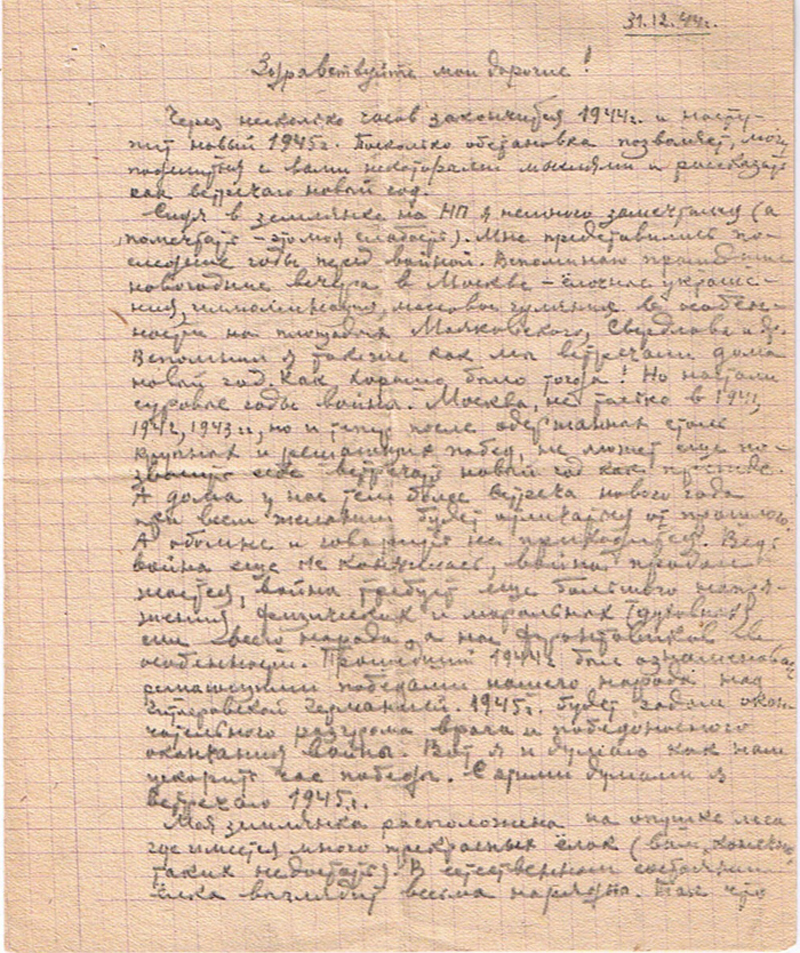 31.12.44г.
Здравствуйте мои дорогие!
Через несколько часов закончится 1944г. и насту-
пит новый 1945г. Поскольку обстановка позволяет, могу
поделиться с вами некоторыми мыслями и рассказать
как встречаю новый год.
Сидя в землянке на НП я немного замечтался (а
помечтать – это моя слабость). Мне представились по-
следние годы перед войной. Вспоминаю прошедшие
новогодние вечера в Москве – ёлочные украше-
ния, иллюминация, массовые гуляния в особен-
ности на площадях Маяковского, Свердлова и др.
Вспомнил я также как мы встречали дома
новый год. Как хорошо было тогда! Но настали
суровые годы войны. Москва, не только в 1941,
1942, 1943 г.г, но и теперь после одержанных столь
крупных и решающих побед, не может еще по-
зволить себе встречать новый год как прежде.
А дома у нас тем более встреча нового года
при всем желании будет отличаться от прошлого.
А обо мне и говорить не приходится. Ведь
война еще не кончилась, война продол-
жается, война требует еще большего напря-
жения, физических и моральных (духовных)
сил всего народа, а нас фронтовиков в
особенности. Прошедший 1944г был ознаменован
решающими победами нашего народа над
гитлеровской Германией. 1945г. будет годом окон-
чательного разгрома врага и победоносного
окончания войны. Вот я и думаю как нам
ускорить час победы. С этими думами я
встречаю 1945г.
Моя землянка расположена на опушке леса
где имеется много прекрасных ёлок (вам, конечно
таких не достать). В естественном состоянии
ёлка выглядит весьма нарядно. Так что